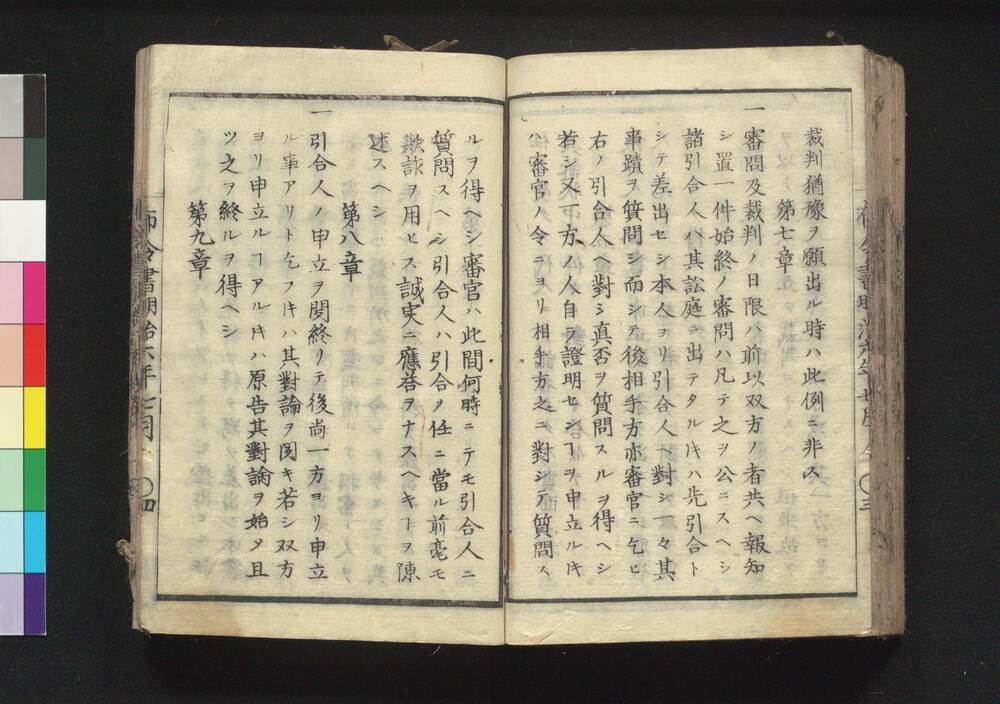 裁判猶豫ヲ願出ル時ハ此例ニ非ス
第七章
一 審問及裁判ノ日限ハ前以双方ノ者共ヘ報知
シ置一件始終ノ審問ハ凡テ之ヲ公ニスヘシ
諸引合人ハ其訟庭ニ出テタルㇳキハ先引合ト
シテ差出セシ本人ヨリ引合人ヘ對シ一々其
事蹟ヲ質問シ而シテ後相手方亦審官ニ乞ヒ
右ノ引合人ヘ對シ真否ヲ質問スルヲ得ヘシ
若シ又一方ノ人自ラ證明センヿヲ申立ルㇳキ
ハ審官ノ令ニヨリ相手方之ニ對シテ質問ス
ルヲ得ヘシ審官ハ此間何時ニテモ引合人ニ
質問スヘシ引合人ハ引合ノ任ニ當ル前毫モ
欺詐ヲ用ヒス誠実ニ應荅ヲナスヘキヿヲ陳
述スヘシ
第八章
一 引合人ノ申立ヲ聞終リテ後尚一方ヨリ申立
ル事アリト乞フㇳキハ其對論ヲ聞キ若シ双方
ヨリ申立ルヿアルㇳキハ原告其對論ヲ始メ且
ツ之ヲ終ルヲ得ヘシ
第九章
布令書明治六年 七月 〇三
布令書明治六年 七月 〇四